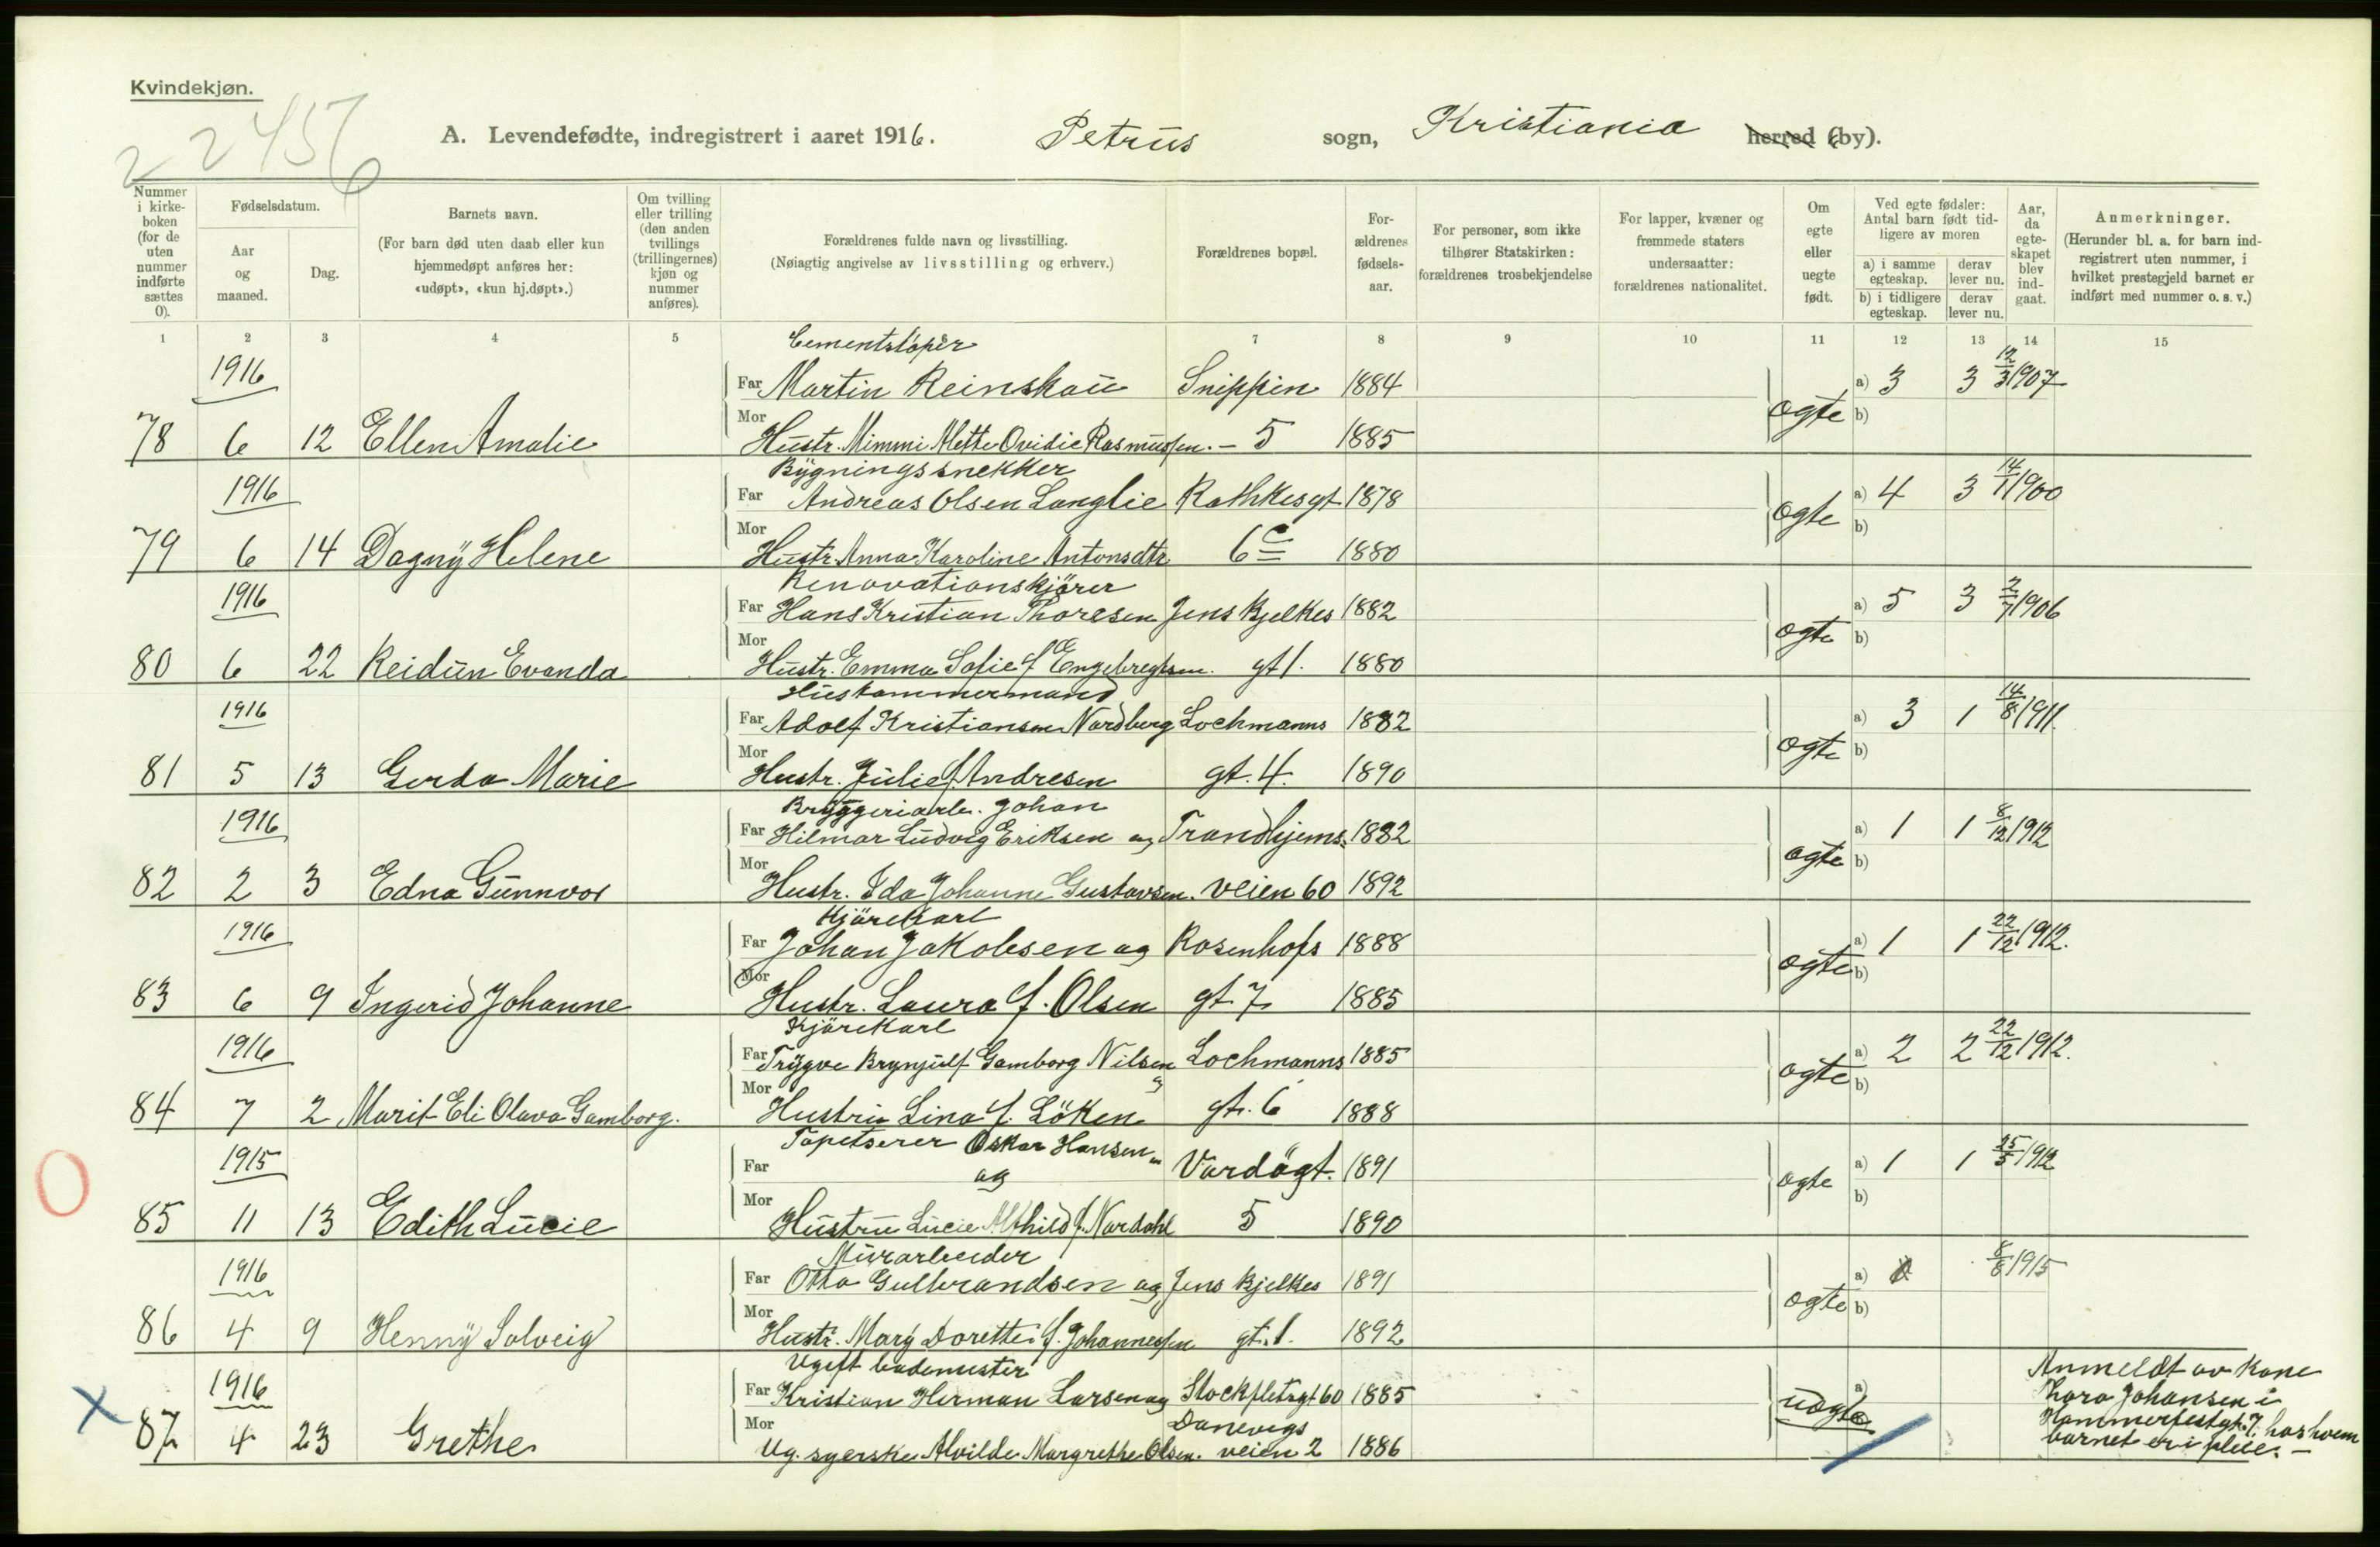 Kvindekjøn.
22456
A. Levendefødte, indregistrert i aaret 1916. Petrus sogn, Kristiania herred (by).
Nummer i kirke-boken (for de uten nummer indførte sættes 0).
Fødselsdatum.
Aar og maaned.
Dag.
Barnets navn.
(For barn død uten daab eller kun hjemmedøpt anføres her: «udøpt», «kun hj.døpt».)
Om tvilling eller trilling (den anden tvillings (trillingernes) kjøn og nummer anføres).
Forældrenes fulde navn og livsstilling.
(Nøiagtig angivelse av livsstilling og erhverv.)
Forældrenes bopæl.
For-ældrenes fødsels-aar.
For personer, som ikke tilhører Statskirken: forældrenes trosbekjendelse
For lapper, kvæner og fremmede staters undersaatter: forældrenes nationalitet.
Om egte eller uegte født.
Ved egte fødsler: Antal barn født tid-ligere av moren
a) i samme egteskap. derav lever nu.
b) i tidligere egteskap. derav lever nu.
Aar, da egte-skapet blev ind-gaat.
Anmerkninger.
(Herunder bl. a. for barn ind-registrert uten nummer, i hvilket prestegjeld barnet er indført med nummer o. s. v.)
1 2 3 4 5 7 8 9 10 11 12 13 14 15
Cementstöper
1916 Far Martin Reinskau Snippen 1884 a) 3 3 12/3 1907
78 6 12 Ellen Amalie Mor Hustr. Mimmi Mette Ovidie Rasmussen. - 5 1885 egte b)
Bygningssnekker
1916 Far Andreas Olsen Langlie Rathkesgt 1878 a) 4 3 14/1 1900
79 6 14 Dagny Helene Mor Hustr. Anna Karoline Antonsdtr 6c 1880 egte b)
Renovationskjörer
1916 Far Hans Kristian Thoresen Jens Bjelkes 1882 a) 5 3 2/7 1906
80 6 22 Reidun Evanda Mor Hustr. Emma Sofie f. Engebregtsen. gt 1. 1880 egte b)
Hustømmermand
1916 Far Adolf Kristiansen Nordberg Lochmanns 1882 a) 3 1 14/8 1911.
81 5 13 Gerda Marie Mor Hustr. Julie f. Andresen gt. 4. 1890 egte b)
Bryggeriarb. Johan
1916 Far Hilmar Ludvig Eriksen og Trondhjems- 1882 a) 1 1 8/12 1912
82 2 3 Edna Gunnvor Mor Hustr. Ida Johanne Gustavsen. veien 60 1892 egte b)
Kjörekarl
1916 Far Johan Jakobsen og Rosenhofs 1888 a) 1 1 22/12 1912.
83 6 9 Ingerid Johanne Mor Hustr. Laura f. Olsen gt. 7 1885 egte b)
Kjörekarl
1916 Far Trygve Brynjulf Gamborg Nilsen og Lochmanns 1885 a) 2 2 22/12 1912.
84 7 2 Marit Eli Olava Gamborg. Mor Hustru Lina f. Löken gt. 6 1888 egte b)
Tapetserer Oskar Hansen
1915 Far og Vardögt. 1891 a) 1 1 25/5 1912
85 11 13 Edith Lucie Mor Hustru Lucie Alfhild f. Nordahl 5 1890 egte b)
Murarbeider
1916 Far Otto Gulbrandsen og Jens Bjelkes 1891 a) 8/8 1915
86 4 9 Henny Solveig Mor Hustr. Mary Dorette f. Johannessen gt. 1. 1892 egte b)
Ugift bademester
1916 Far Kristian Herman Larsen og Stockfletsgt 60 1885 a)
87 4 23 Grethe Mor Ug. syerske Alvilde Margrethe Olsen. Danevigs veien 2 1886 uegte
Anmeldt av Kone
Thora Johansen i
Hammerfestgt. 7, hos hvem
barnet er i pleie. -